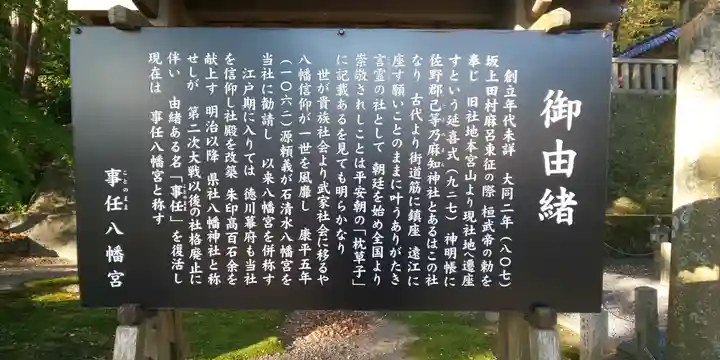 御由緒
創立年代未詳　大同二年（八〇七）
坂上田村麻呂東征の際　桓武帝の勅を
奉じ　旧社地本宮山より現社地へ遷座
すという延喜式（九二七）　神明帳に
佐野郡己等乃麻知神社とあるはこの社
なり　古代より街道筋に鎮座　遠江に
座す願いごとのままに叶うありがたき
言霊の社として　朝廷を始め全国より
崇敬されしことは平安朝の「枕草子」
に記載あるを見ても明らかなり
世が貴族社会より武家社会に移るや
八幡信仰が一世を風靡し　康平五年
（一〇六二）源頼義が石清水八幡宮を
当社に勧請し　以来八幡宮を併称す
江戸期に入りては　徳川幕府も当社
を信仰し社殿を改築　朱印高百石余を
献上す　明治以降　県社八幡神社と称
せしが　第二次大戦以後の社格廃止に
伴い　由緒ある名「事任」を復活し
現在は　事任八幡宮と称す
事任八幡宮
ことのまま